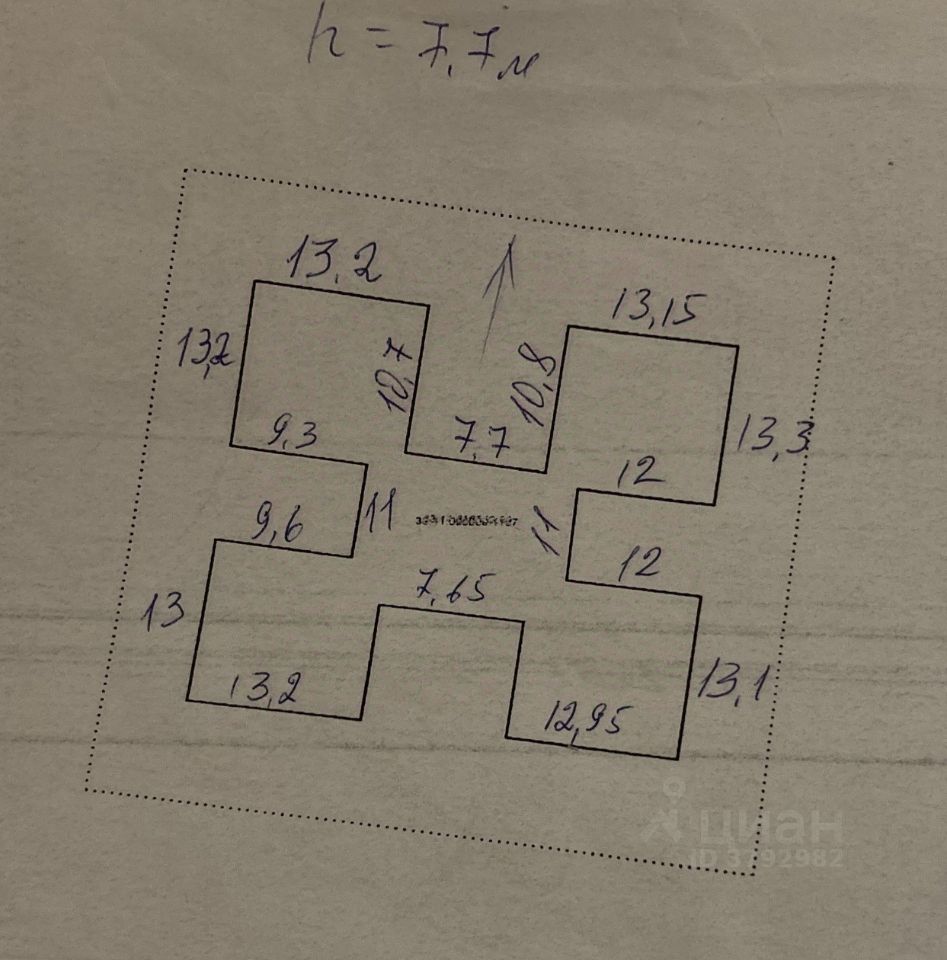 h = 7,7м
13,2
13,15
13,2
10,7
10,8
13,3
9,3
7,7
12
11
11
9,6
12
7,65
13
13,1
13,2
12,95
циан